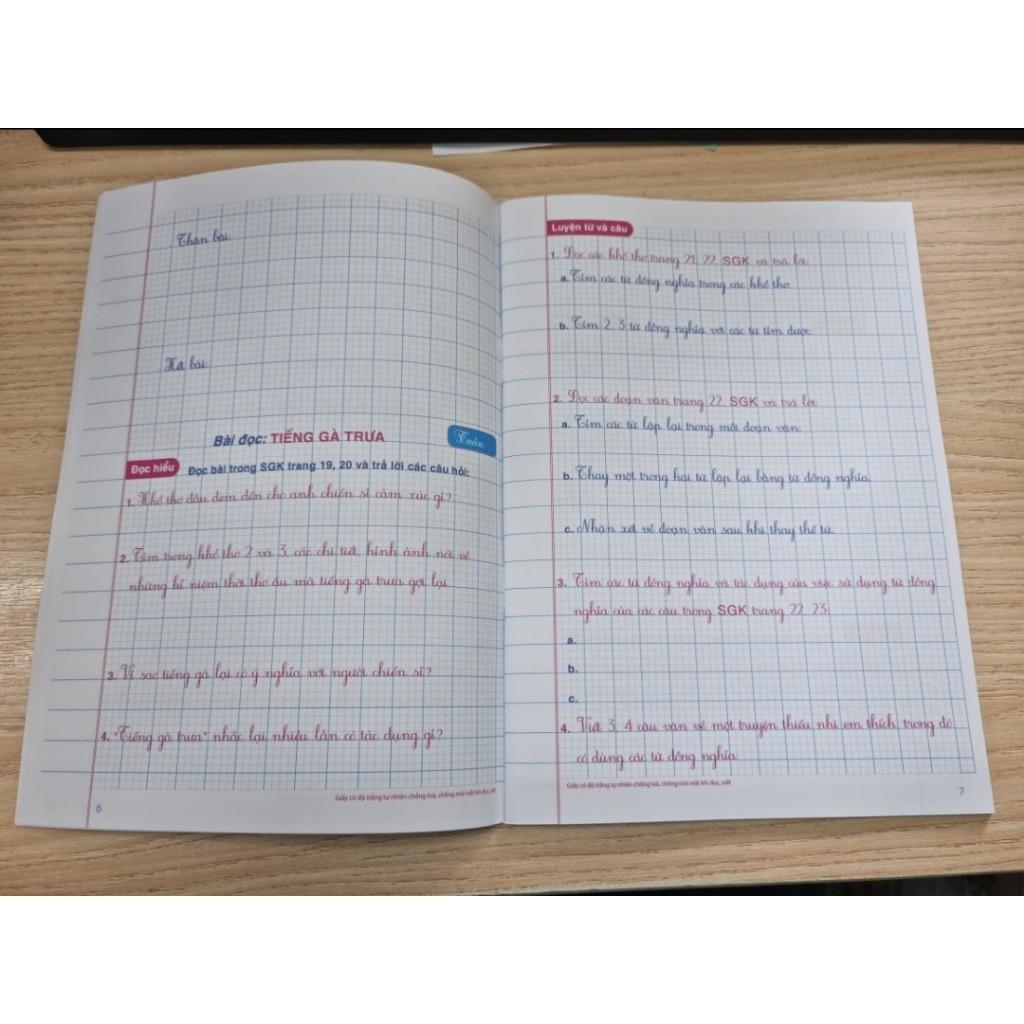 Thân bài:
Kết bài:
Bài đọc: TIẾNG GÀ TRƯA
Tuần
Đọc hiểu
Đọc bài trong SGK trang 19, 20 và trả lời các câu hỏi:
1. Khổ thơ đầu đem đến cho anh chiến sĩ cảm xúc gì?
2. Tìm trong khổ thơ 2 và 3, các chi tiết, hình ảnh nói về
những kỉ niệm thời thơ ấu mà tiếng gà trưa gợi lại.
3. Vì sao tiếng gà lại có ý nghĩa với người chiến sĩ?
4. "Tiếng gà trưa" nhắc lại nhiều lần có tác dụng gì?
Giấy có độ trắng tự nhiên chống loá, chống mỏi mắt khi đọc, viết
6
Luyện từ và câu
1. Đọc các khổ thơ trang 21, 22 SGK và trả lời:
a. Tìm các từ đồng nghĩa trong các khổ thơ.
b. Tìm 2, 3 từ đồng nghĩa với các từ tìm được.
2. Đọc các đoạn văn trang 22 SGK và trả lời:
a. Tìm các từ lặp lại trong mỗi đoạn văn.
b. Thay một trong hai từ lặp lại bằng từ đồng nghĩa.
c. Nhận xét về đoạn văn sau khi thay thế từ.
3. Tìm các từ đồng nghĩa và tác dụng của việc sử dụng từ đồng
nghĩa của các câu trong SGK trang 22, 23.
a.
b.
c.
4. Viết 3, 4 câu văn về một truyện thiếu nhi em thích, trong đó
có dùng các từ đồng nghĩa.
Giấy có độ trắng tự nhiên chống loá, chống mỏi mắt khi đọc, viết
7